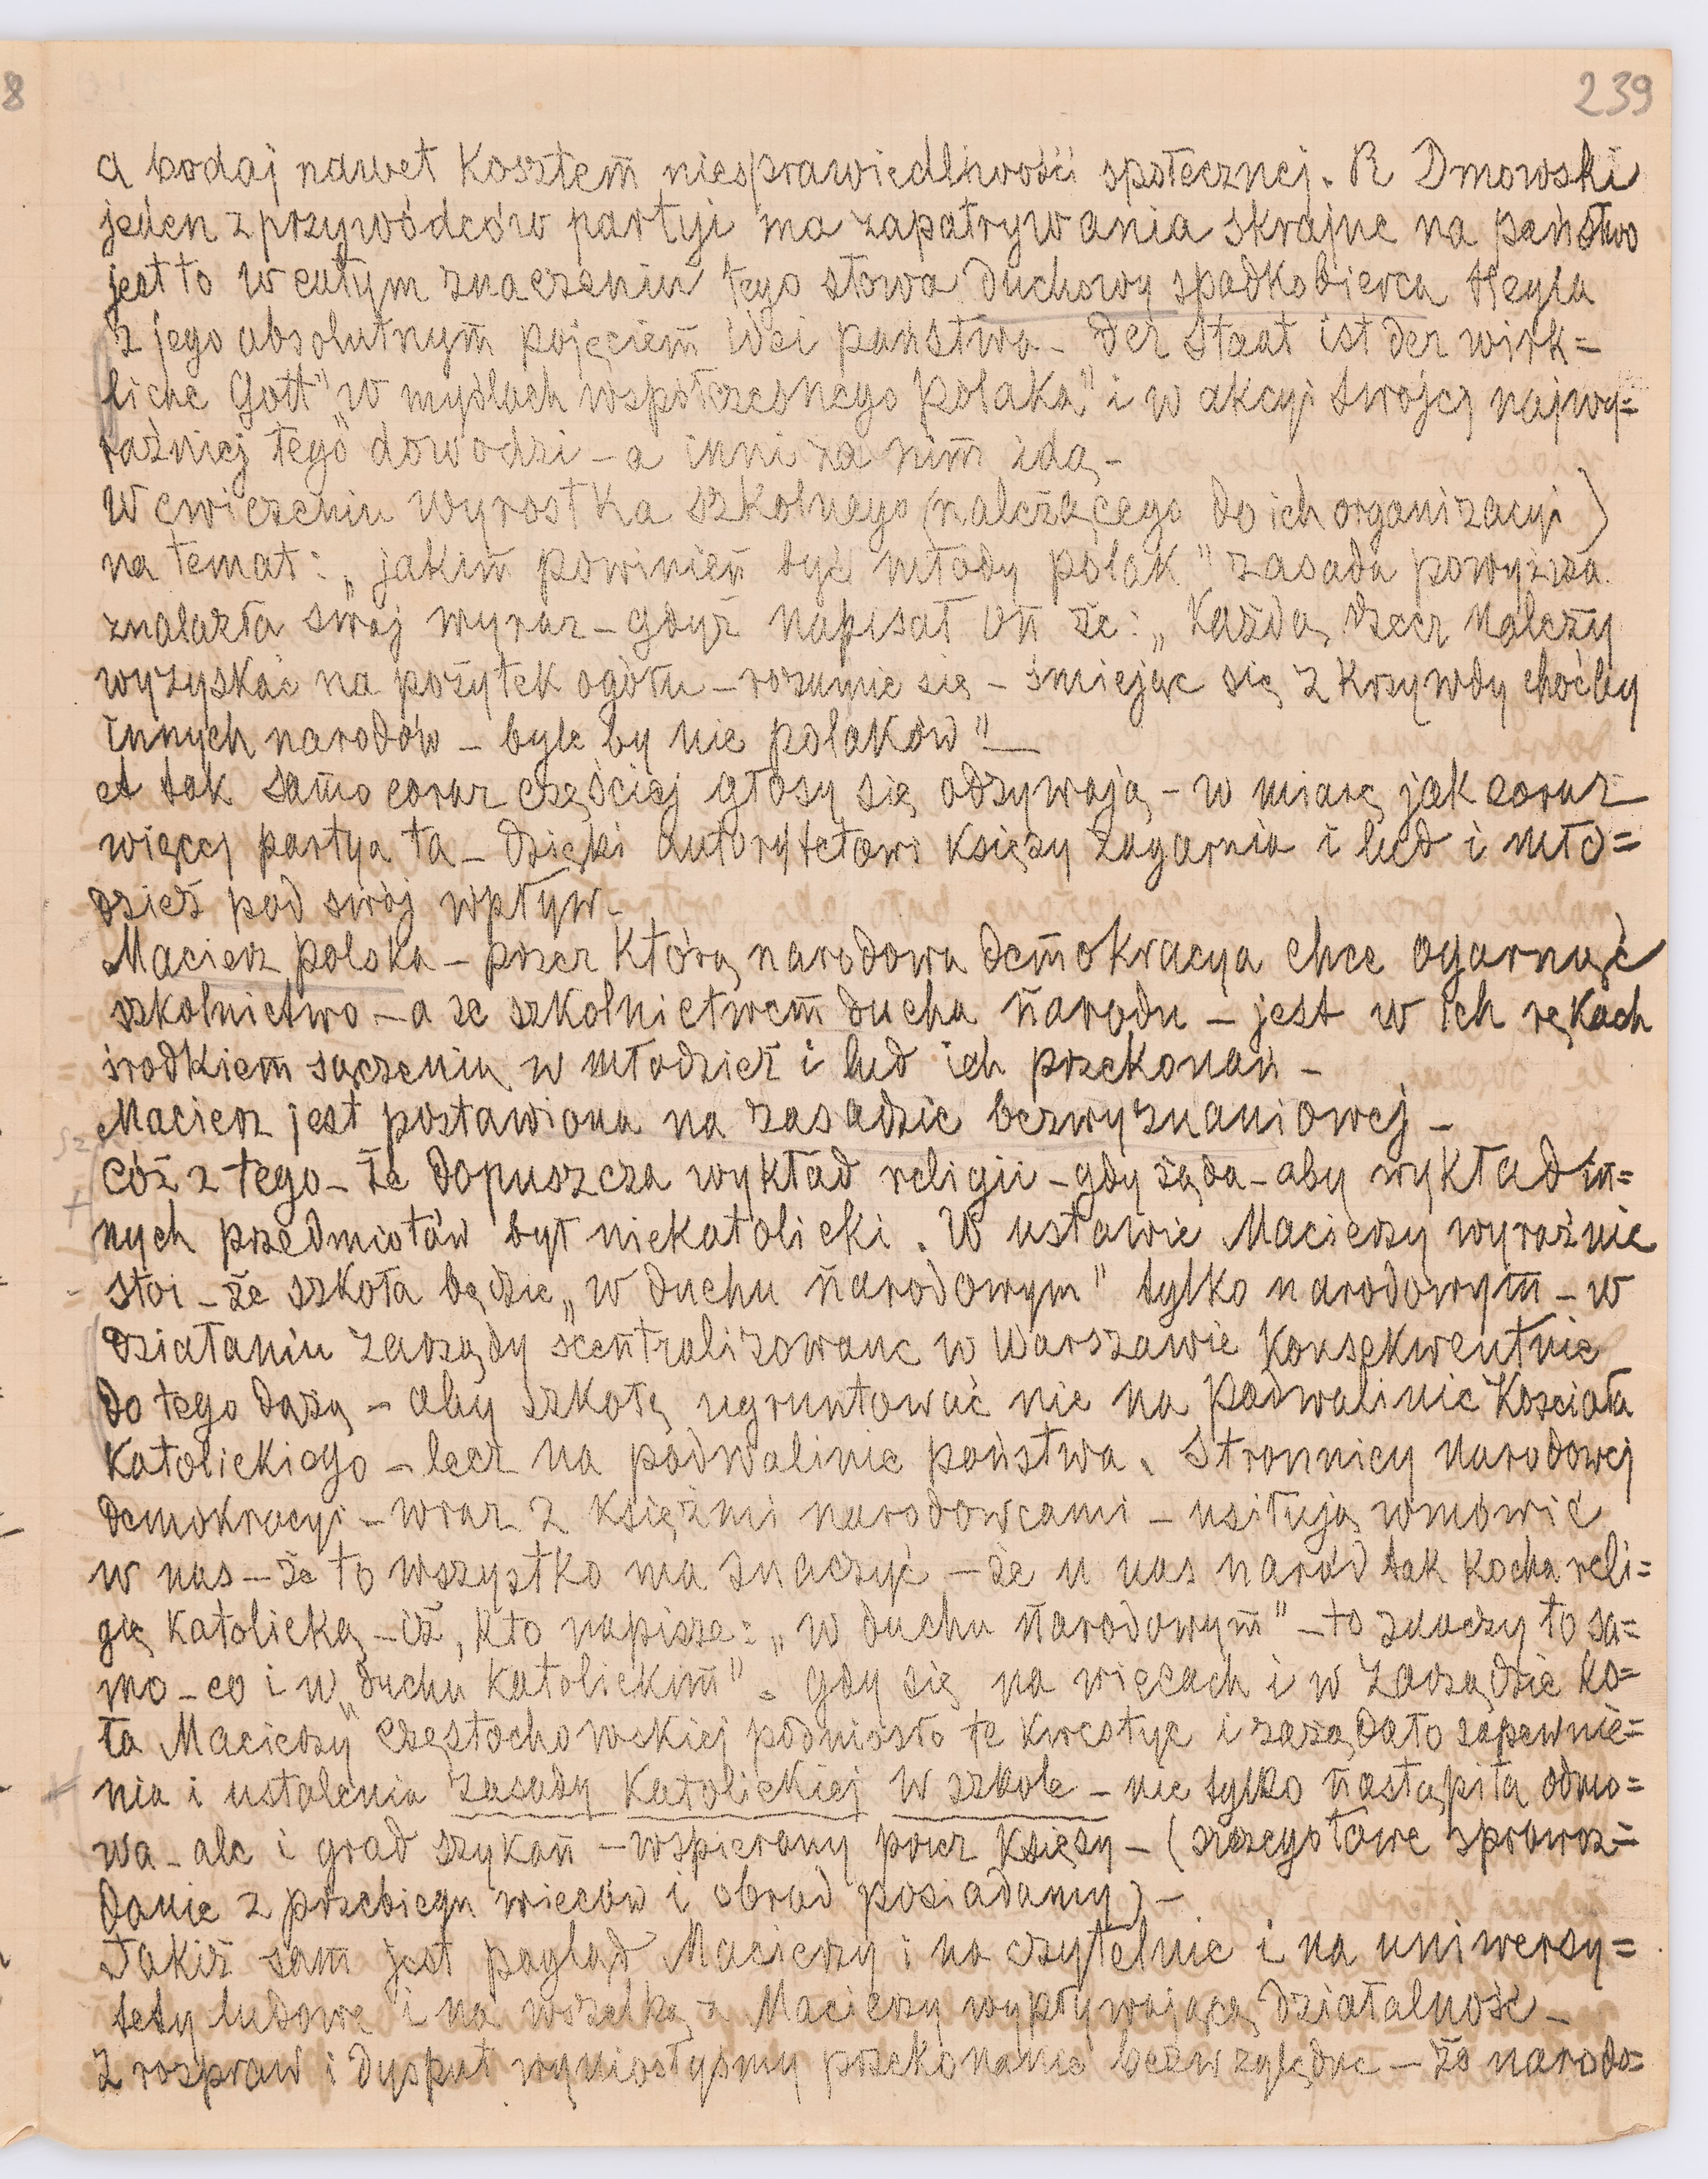 239
a bodaj nawet kosztem niesprawiedliwości społecznej. R Dmowski
jeden z przywódców partyi ma zapatrywania skrajne na państwo
jest to w całym znaczeniu tego słowa duchowy spadkobierca Hegla
z jego absolutnym pojęciem idei państwa – der Staat ist der wirk=
liche Gott" w „myślach współczesnego polaka" i w akcyi swojej najwy=
raźniej tego dowodzi – a inni za nim idą –
W ćwiczeniu wyrostka szkolnego (należącego do ich organizacyi)
na temat: „jakim powinien być młody polak" zasada powyższa
znalazła swój wyraz – gdyż napisał on że: „Każdą rzecz należy
wyzyskać na pożytek ogółu – rozumie się – śmiejąc się z krzywdy choćby
innych narodów – byle by nie polaków" –
A tak samo coraz częściej głosy się odzywają – w miarę jak coraz
więcej partya ta – dzięki autorytetowi księży zagarnia i lud i mło=
dzież pod swój wpływ –
Macierz polska – przez którą narodowa demokracya chce ogarnąć
szkolnictwo – a ze szkolnictwem ducha narodu – jest w ich rękach
środkiem sączenia w młodzież i lud ich przekonań –
Macierz jest postawiona na zasadzie bezwyznaniowej –
Cóż z tego – że dopuszcza wykład religii – gdy żąda – aby wykład in=
nych przedmiotów był niekatolicki. W ustawie Macierzy wyraźnie
stoi – że szkoła będzie „w duchu narodowym" tylko narodowym – w
działaniu zarządy scentralizowane w Warszawie konsekwentnie
do tego dążą – aby szkołę ugruntować nie na podwalinie Kościoła
Katolickiego – lecz na podwalinie państwa. Stronnicy narodowej
demokracyi – wraz z księżmi narodowcami – usiłują wmówić
w nas – że to wszystko ma znaczyć – że u nas naród tak kocha reli=
gię katolicką – iż, kto napisze: „w duchu narodowym" – to znaczy to sa=
mo – co i w „duchu katolickim". gdy się na wiecach i w zarządzie ko=
ła Macierzy częstochowskiej podniosło te kwestye i zażądało zapewnie=
nia i ustalenia zasady katolickiej w szkole – nie tylko nastąpiła odmo=
wa – ale i grad szykan – wspierany przez księży – (szczegółowe sprawoz=
danie z przebiegu wieców i obrad posiadamy) –
Takiż sam jest pogląd Macierzy i na czytelnie i na uniwersy=
tety ludowe i na wszelką z Macierzy wypływającą działalność –
Z rozpraw i dysput wyniosłyśmy przekonanie bezwzględne – że narodo=